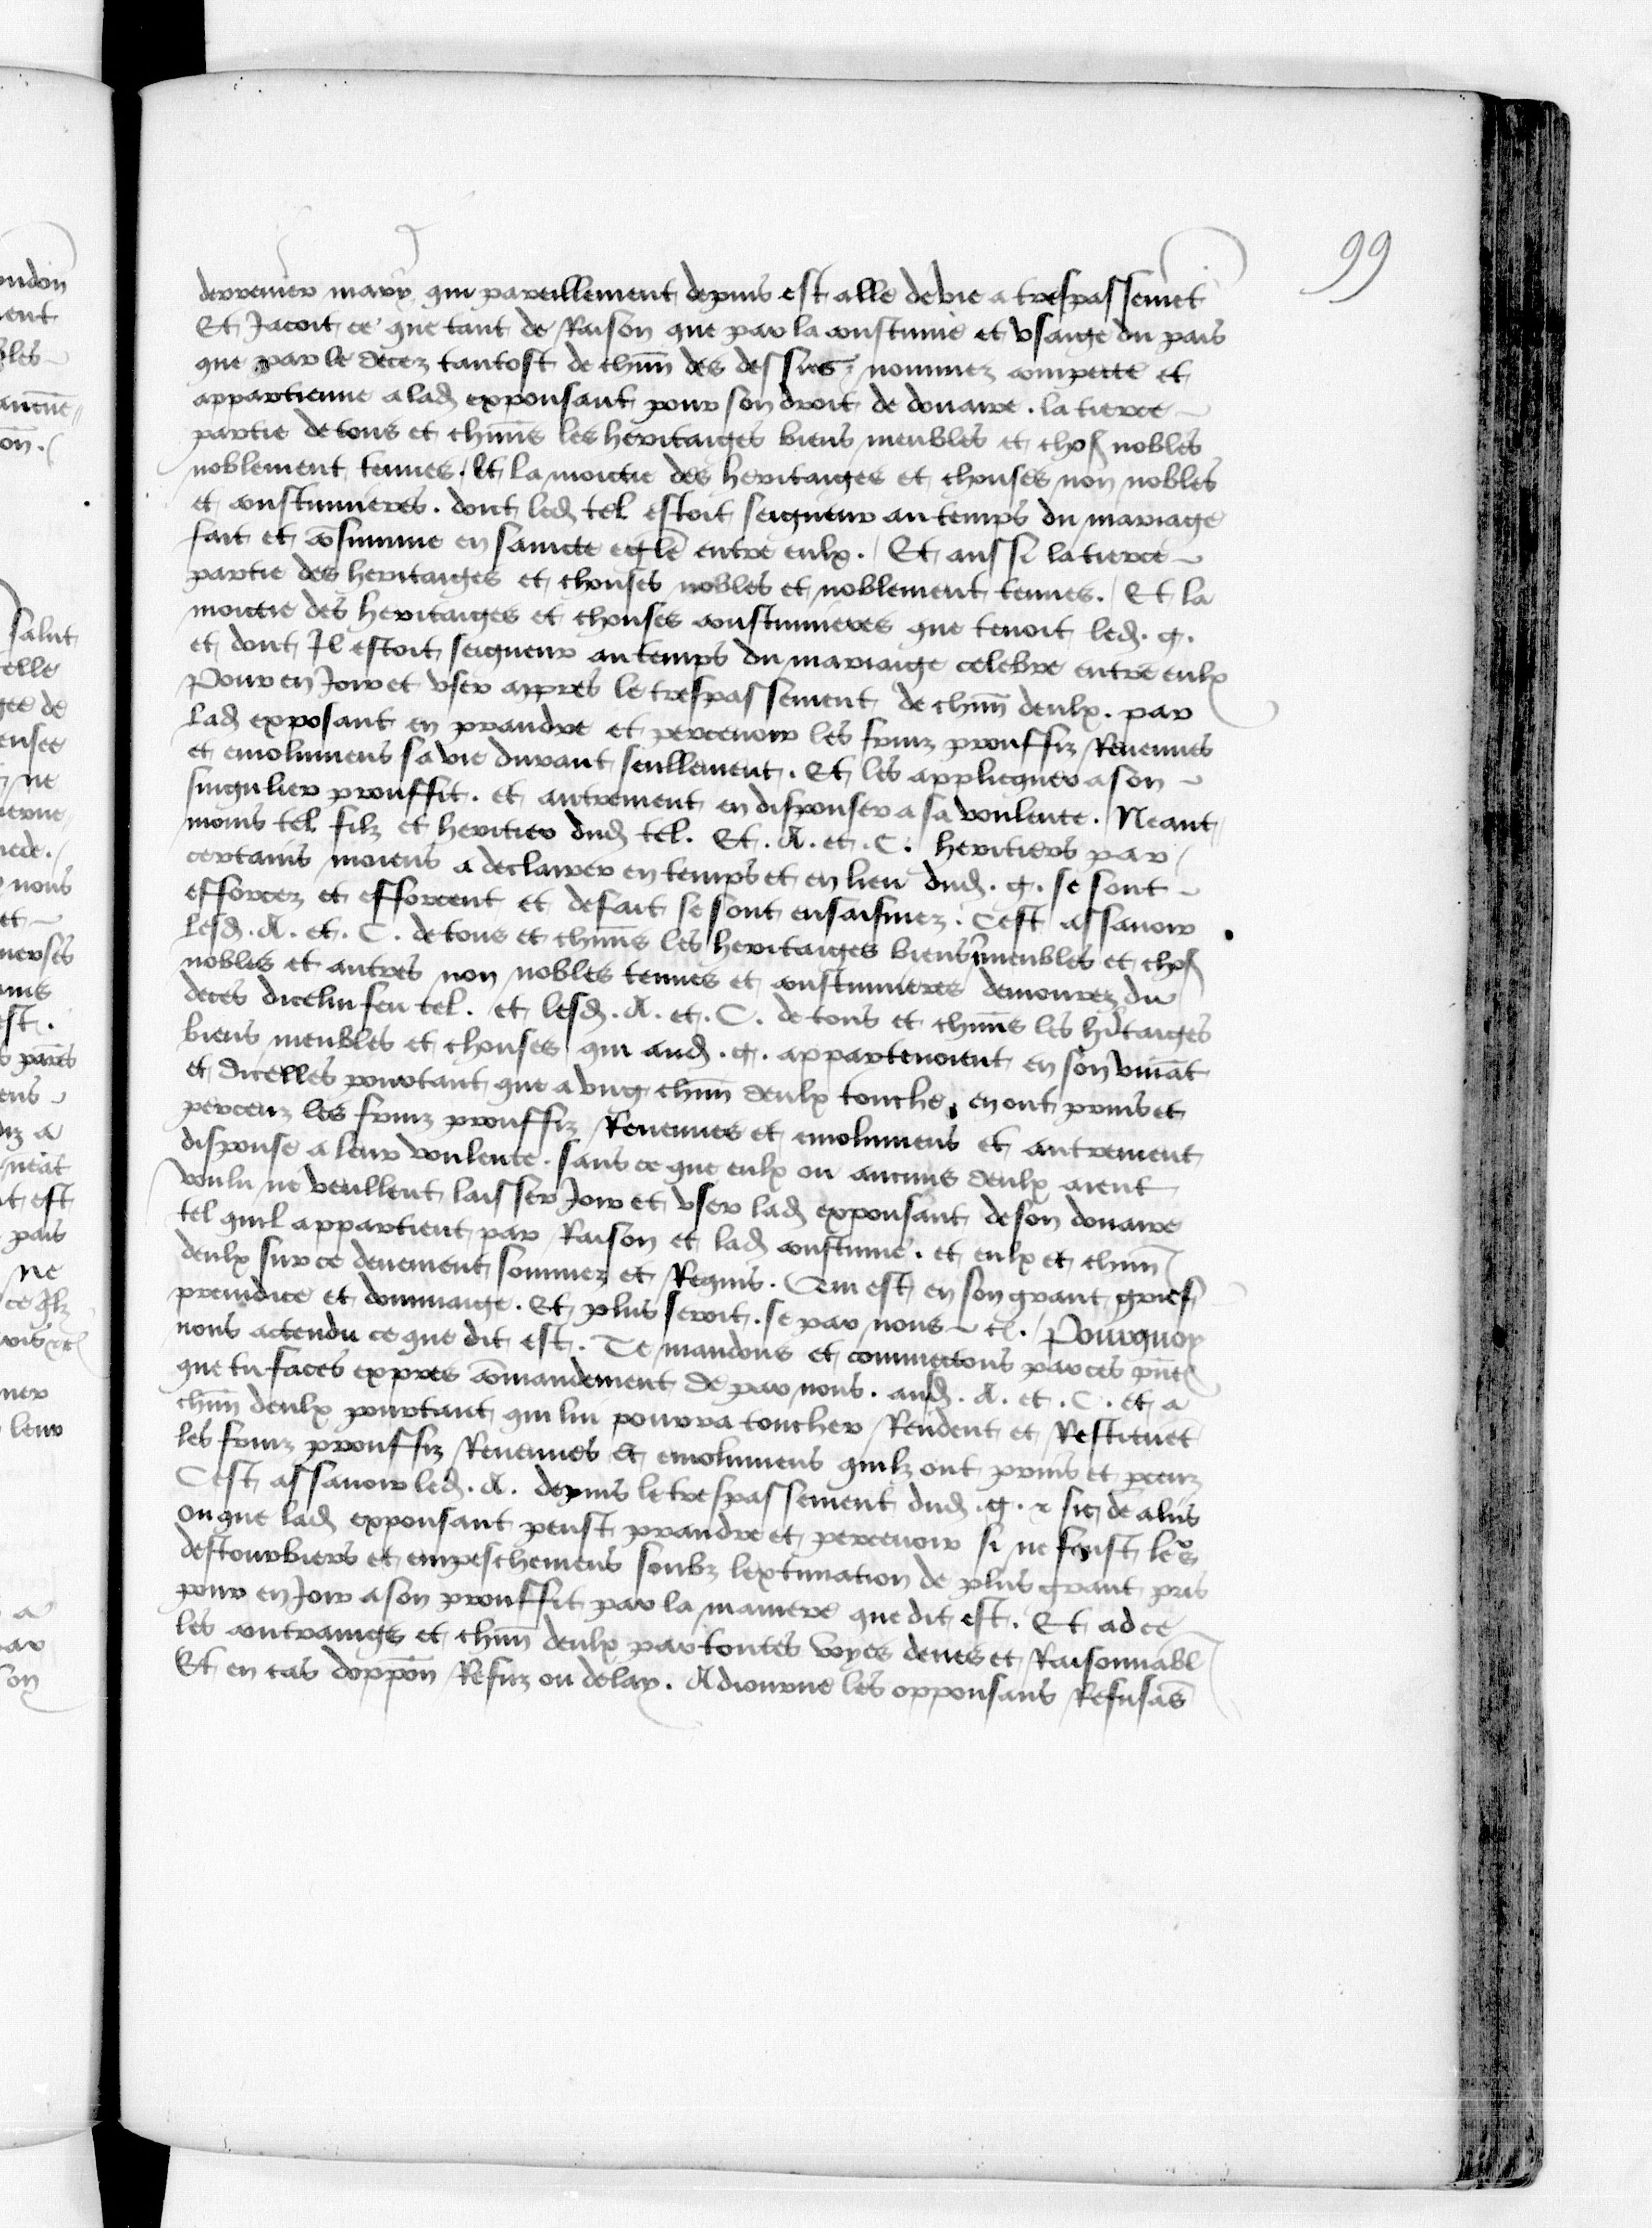 99
derrenier mary qui pareillement depuis est alle de vie a trespassemēt
Et Jacoit ce que tant de Raison que par la coustume et vsaige du pais
que par le decez tantost de chūn des dessus nommez compecte et
appartienne a lad exponsant pour son droit de douaire . la tierce
partie de tous et chūns les heritaiges biens meubles et chos nobles
noblement tenues . Et la moictie des heritaiges et chouses non nobles
et coustumieres . dont led tel estoit seigneur au temps du mariage
fait et cōsumme en saincte eglē entre eulx . Et aussi la tierce
partie des heritaiges et chouses nobles et noblement tenues . Et la
moictie des heritaiges et chouses coustumieres que tenoit led . g .
et dont Il estoit seigneur au temps du mariaige celebre entre eulx
Pour en Joir et vser appres le trespassement de chūn deulx . par
lad exposant en prandre et percevoir les fruiz prouffiz Revenues
et emolumens sa vie durant seullement . Et les applicquer a son
singulier prouffit . et autrement en disponser a sa voulente . Neant
moins tel filz et heritier dud tel . Et . A . et . C . heritiers par
certains moiens a declairer en temps et en lieu dud . g . se sont
efforcez et efforcent et de fait se sont ensaisinez . Cest assavoir
lesd . A . et . C . de tous et chūns les heritaiges biens meubles et chos
nobles et autres non nobles tenues et coustumieres demourez du
deces dicelui feu tel . et lesd . A . et . C . de tous et chūns les hītaiges
biens meubles et chouses qui aud . g . appartenoient en son vivāt
et dicelles pourtant que a vng chūn deulx touche en ont prins et
perceuz les fruiz prouffiz Revenues et emolumens et autrement
disponse a leur voulente . sans ce que eulx ou aucuns deulx aient
voulu ne veullent laisser Joir et vser lad exponsant de son douaire
tel quil appartient par Raison et lad coustume . et eulx et chūn
deulx sur ce deuement sommez et Requis . Qui est en son grant grief
preiudice et dommaige . Et plus seroit . se par nous etc . Pourquoy
nous actendu ce que dit est . Te mandons et commectons par ces pn̄tes
que tu faces expres cōmandement de par nous . aud . A . et . C . et a
chūn deulx pourtant qui lui pourra toucher Rendent et Restituēt
les fruiz prouffiz Revenues et emolumens quilz ont prins et perceuz
Cest assavoir led . A . depuis le trespassement dud . g . & sic de aliis
ou que lad exponsant peust prandre et percevoir si ne feust leurs
destourbiers et empeschemens soubz lextimation de plus grant pris
pour en Joir a son prouffit par la maniere que dit est . Et ad ce
les contraings et chūn deulx par toutes voyes deues et Raisonnabl
Et en cas dopp̄on Refuz ou delay . Adiourne les opponsans Refusās